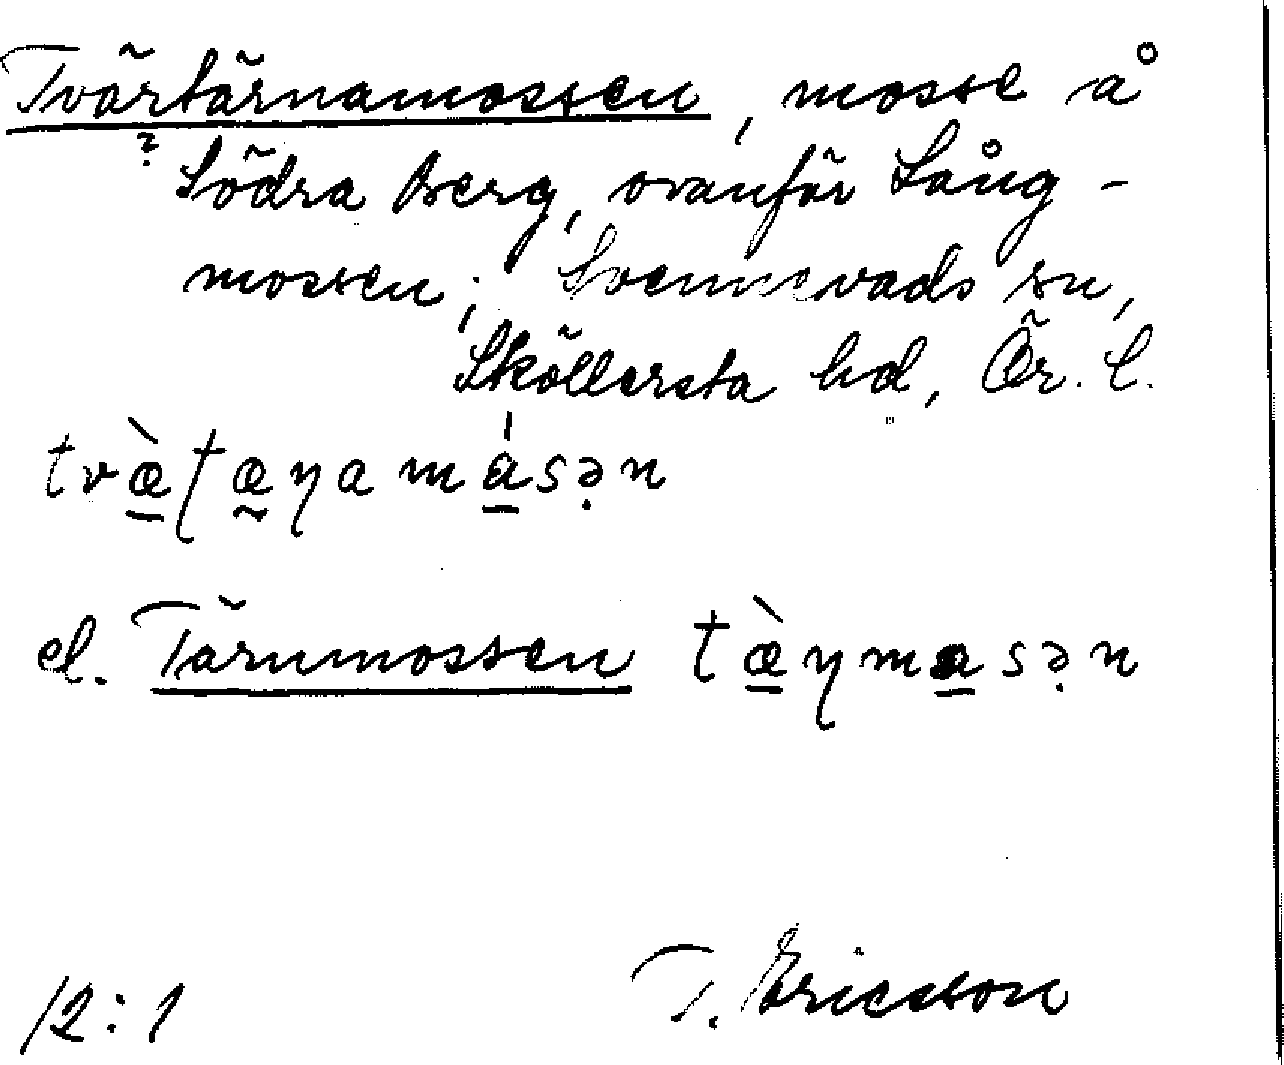 Tvärtärnamossen, mosse å
? Södra Berg, ovanför Lång-
mossen; Svennevads sn,
Sköllersta hd, Ör. l.
tvæ̀ʈæɳamásən
el. Tärnmossen tæ̀ɳmasən
12:1 T. Ericsson